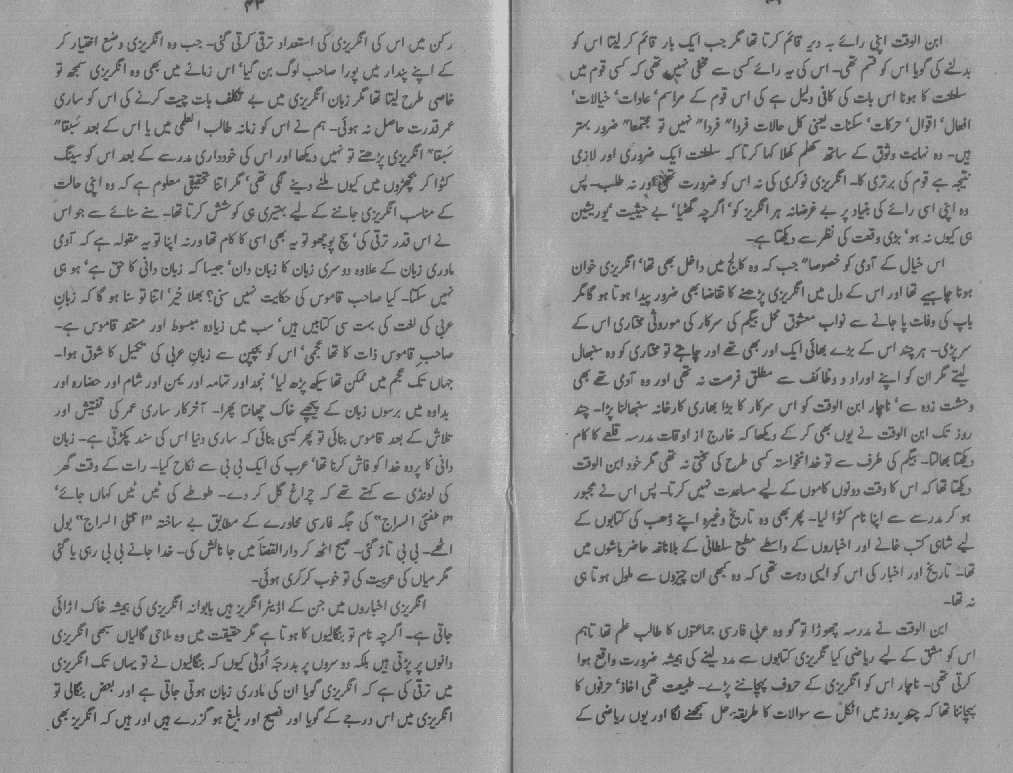 ابن الوقت اپنی رائے بہ دیر قائم کرتا تھا مگر جب ایک بار قائم کر لیتا اس کو
بدلنے کی گویا اس کو قسم تھی۔ اس کی یہ رائے کسی سے مخفی نہیں تھی کہ کسی قوم میں
سلطنت کا ہونا اس بات کی کافی دلیل ہے کی اس قوم کے مراسم‘ عادات‘ خیالات‘
افعال‘ اقوال‘ حرکات‘ سکنات یعنی کل حالات فردا" فردا" نہیں تو مجتمعا" ضرور بہتر
ہیں۔ وہ نہایت وثوق کے ساتھ کھلم کھلا کہا کرتا کہ سلطنت ایک ضروری اور لازمی
نتیجہ ہے قوم کی برتری کا۔ انگریزی نوکری کی نہ اس کو ضرورت تھی اور نہ طلب۔ پس
وہ اپنی اسی رائے کی بنیاد پر بے غرضانہ ہر انگریز کو‘ اگرچہ گھٹیا‘ بے حیثیت‘ یوریشین
ہی کیوں نہ ہو‘ بڑی وقعت کی نظر سے دیکھتا ہے۔
اس خیال کے آدمی کو خصوصا" جب کہ وہ کالج میں داخل بھی تھا‘ انگریزی خوان
ہونا چاہیے تھا اور اس کے دل میں انگریزی پڑھنے کا تقاضا بھی ضرور پیدا ہوتا ہو گا مگر
باپ کی وفات پا جانے سے نواب معشوق محل بیگم کی سرکار کی موروثی مختاری اس کے
سر پڑی۔ ہر چند اس کے بڑے بھائی ایک اور بھی تھے اور چاہتے تو مختاری کو وہ سنبھال
لیتے مگر ان کو اپنے اوراد و وظائف سے مطلق فرصت نہ تھی اور وہ آدمی تھے بھی
وحشت زدہ سے‘ ناچار ابن الوقت کو اس سرکار کا بڑا بھاری کارخانہ سنبھالنا پڑا۔ چند
روز تک ابن الوقت نے یوں بھی کر کے دیکھا کہ خارج از اوقات مدرسہ قلعے کا کام
دیکھتا بھالتا۔ بیگم کی طرف سے تو خدانخواستہ کسی طرح کی سختی نہ تھی مگر خود ابن الوقت
دیکھتا تھا کہ اس کا وقت دونوں کاموں کے لیے مساعدت نہیں کرتا۔ پس اس نے مجبور
ہو کر مدرسے سے اپنا نام کٹوا لیا۔ پھر بھی وہ تاریخ وغیرہ اپنے ڈھب کی کتابوں کے
لیے شاہی کتب خانے اور اخباروں کے واسطے مطبع سلطانی کے بلاناغہ حاضر باشوں میں
تھا۔ تاریخ اور اخبار کی اس کو ایسی دھت تھی کہ وہ کبھی ان چیزوں سے ملول ہوتا ہی
نہ تھا۔
ابن الوقت نے مدرسہ چھوڑا تو گو وہ عربی فارسی جماعتوں کا طالب علم تھا تاہم
اس کو مشق کے لیے ریاضی کیا نگریزی کتابوں سے مدد لینے کی ہمیشہ ضرورت واقع ہوا
کرتی تھی۔ ناچار اس کو انگریزی کے حروف پہچاننے پڑے۔ طبیعت تھی اخاذ‘ حرفوں کا
پہچاننا تھا کہ چند روز میں اٹکل سے سوالات کا طریقہ حل سمجھنے لگا اور یوں ریاضی کے
۳۳
رکن میں اس کی انگریزی کی استعداد ترقی کرتی گئی۔ جب وہ انگریزی وضع اختیار کر
کے اپنے پندار میں پورا صاحب لوگ بن گیا‘ اس زمانے میں بھی وہ انگریزی سمجھ تو
خاصی طرح لیتا تھا مگر زبان انگریزی میں بے تکلف بات چیت کرنے کی اس کو ساری
عمر قدرت حاصل نہ ہوئی۔ ہم نے اس کو زمانہ طالب العلمی میں یا اس کے بعد سبقا"
سبقا" انگریزی پڑھتے تو نہیں دیکھا اور اس کی خودداری مدرسے کے بعد اس کو سینگ
کٹوا کر بچھڑوں میں کیوں ملنے دینے لگی تھی‘ مگر اتنا تحقیق معلوم ہے کہ وہ اپنی حالت
کے مناسب انگریزی جاننے کے لیے بہتیری ہی کوشش کرتا تھا۔ سنے سنائے سے جو اس
نے اس قدر ترقی کی‘ سچ پوچھو تو یہ بھی اسی کا کام تھا ورنہ اپنا تو یہ مقولہ ہے کہ آدمی
مادری زبان کے علاوہ دوسری زبان کا زبان دان‘ جیسا کہ زبان دانی کا حق ہے‘ ہو ہی
نہیں سکتا۔ کیا صاحب قاموس کی حکایت نہیں سنی؟ بھلا خیر‘ اتنا تو سنا ہو گا کہ زبان
عربی کی لغت کی بہت سی کتابیں ہیں‘ سب میں زیادہ مبسوط اور مستند قاموس ہے۔
صاحب قاموس ذات کا تھا عجمی‘ اس کو بچپن سے زبان عربی کی تکمیل کا شوق ہوا۔
جہاں تک عجم میں ممکن تھا سیکھ پڑھ لیا‘ نجد اور تہامہ اور یمن اور شام اور حضارہ اور
بداوہ میں برسوں زبان کے پیچھے خاک چھانتا پھرا۔ آخر کار ساری عمر کی تفتیش اور
تلاش کے بعد قاموس بنائی تو پھر کیسی بنائی کہ ساری دنیا اس کی سند پکڑتی ہے۔ زبان
دانی کا پردہ خدا کو فاش کرنا تھا‘ عرب کی ایک بی بی سے نکاح کیا۔ رات کے وقت گھر
کی لونڈی سے کہتے تھے کہ چراغ گل کر دے۔ طوطے کی ٹیں ٹیں کہاں جائے‘
"اطفئ السراج" کی جگہ فارسی محاورے کے مطابق بے ساختہ "اقتلی السراج" بول
اٹھے۔ بی بی تاڑ گئی۔ صبح اٹھ کر دارالقضا میں جا نالش کی۔ خدا جانے بی بی رہی یا گئی
مگر میاں کی عربیت کی تو خوب کرکری ہوئی۔
انگریزی اخباروں میں جن کے اڈیٹر انگریز ہیں بابوانہ انگریزی کی ہمیشہ خاک اڑائی
جاتی ہے۔ اگرچہ نام تو بنگالیوں کا ہوتا ہے مگر حقیقت میں وہ ملاحی گالیاں سبھی انگریزی
دانوں پر پڑتی ہیں بلکہ دوسروں پر بدرجہ اولی کیوں کہ بنگالیوں نے تو یہاں تک انگریزی
میں ترقی کی ہے کہ انگریزی گویا ان کی مادری زبان ہوتی جاتی ہے اور بعض بنگالی تو
انگریزی میں اس درجے کے گویا اور فصیح اور بلیغ ہو گزرے ہیں اور ہیں کہ انگریز بھی